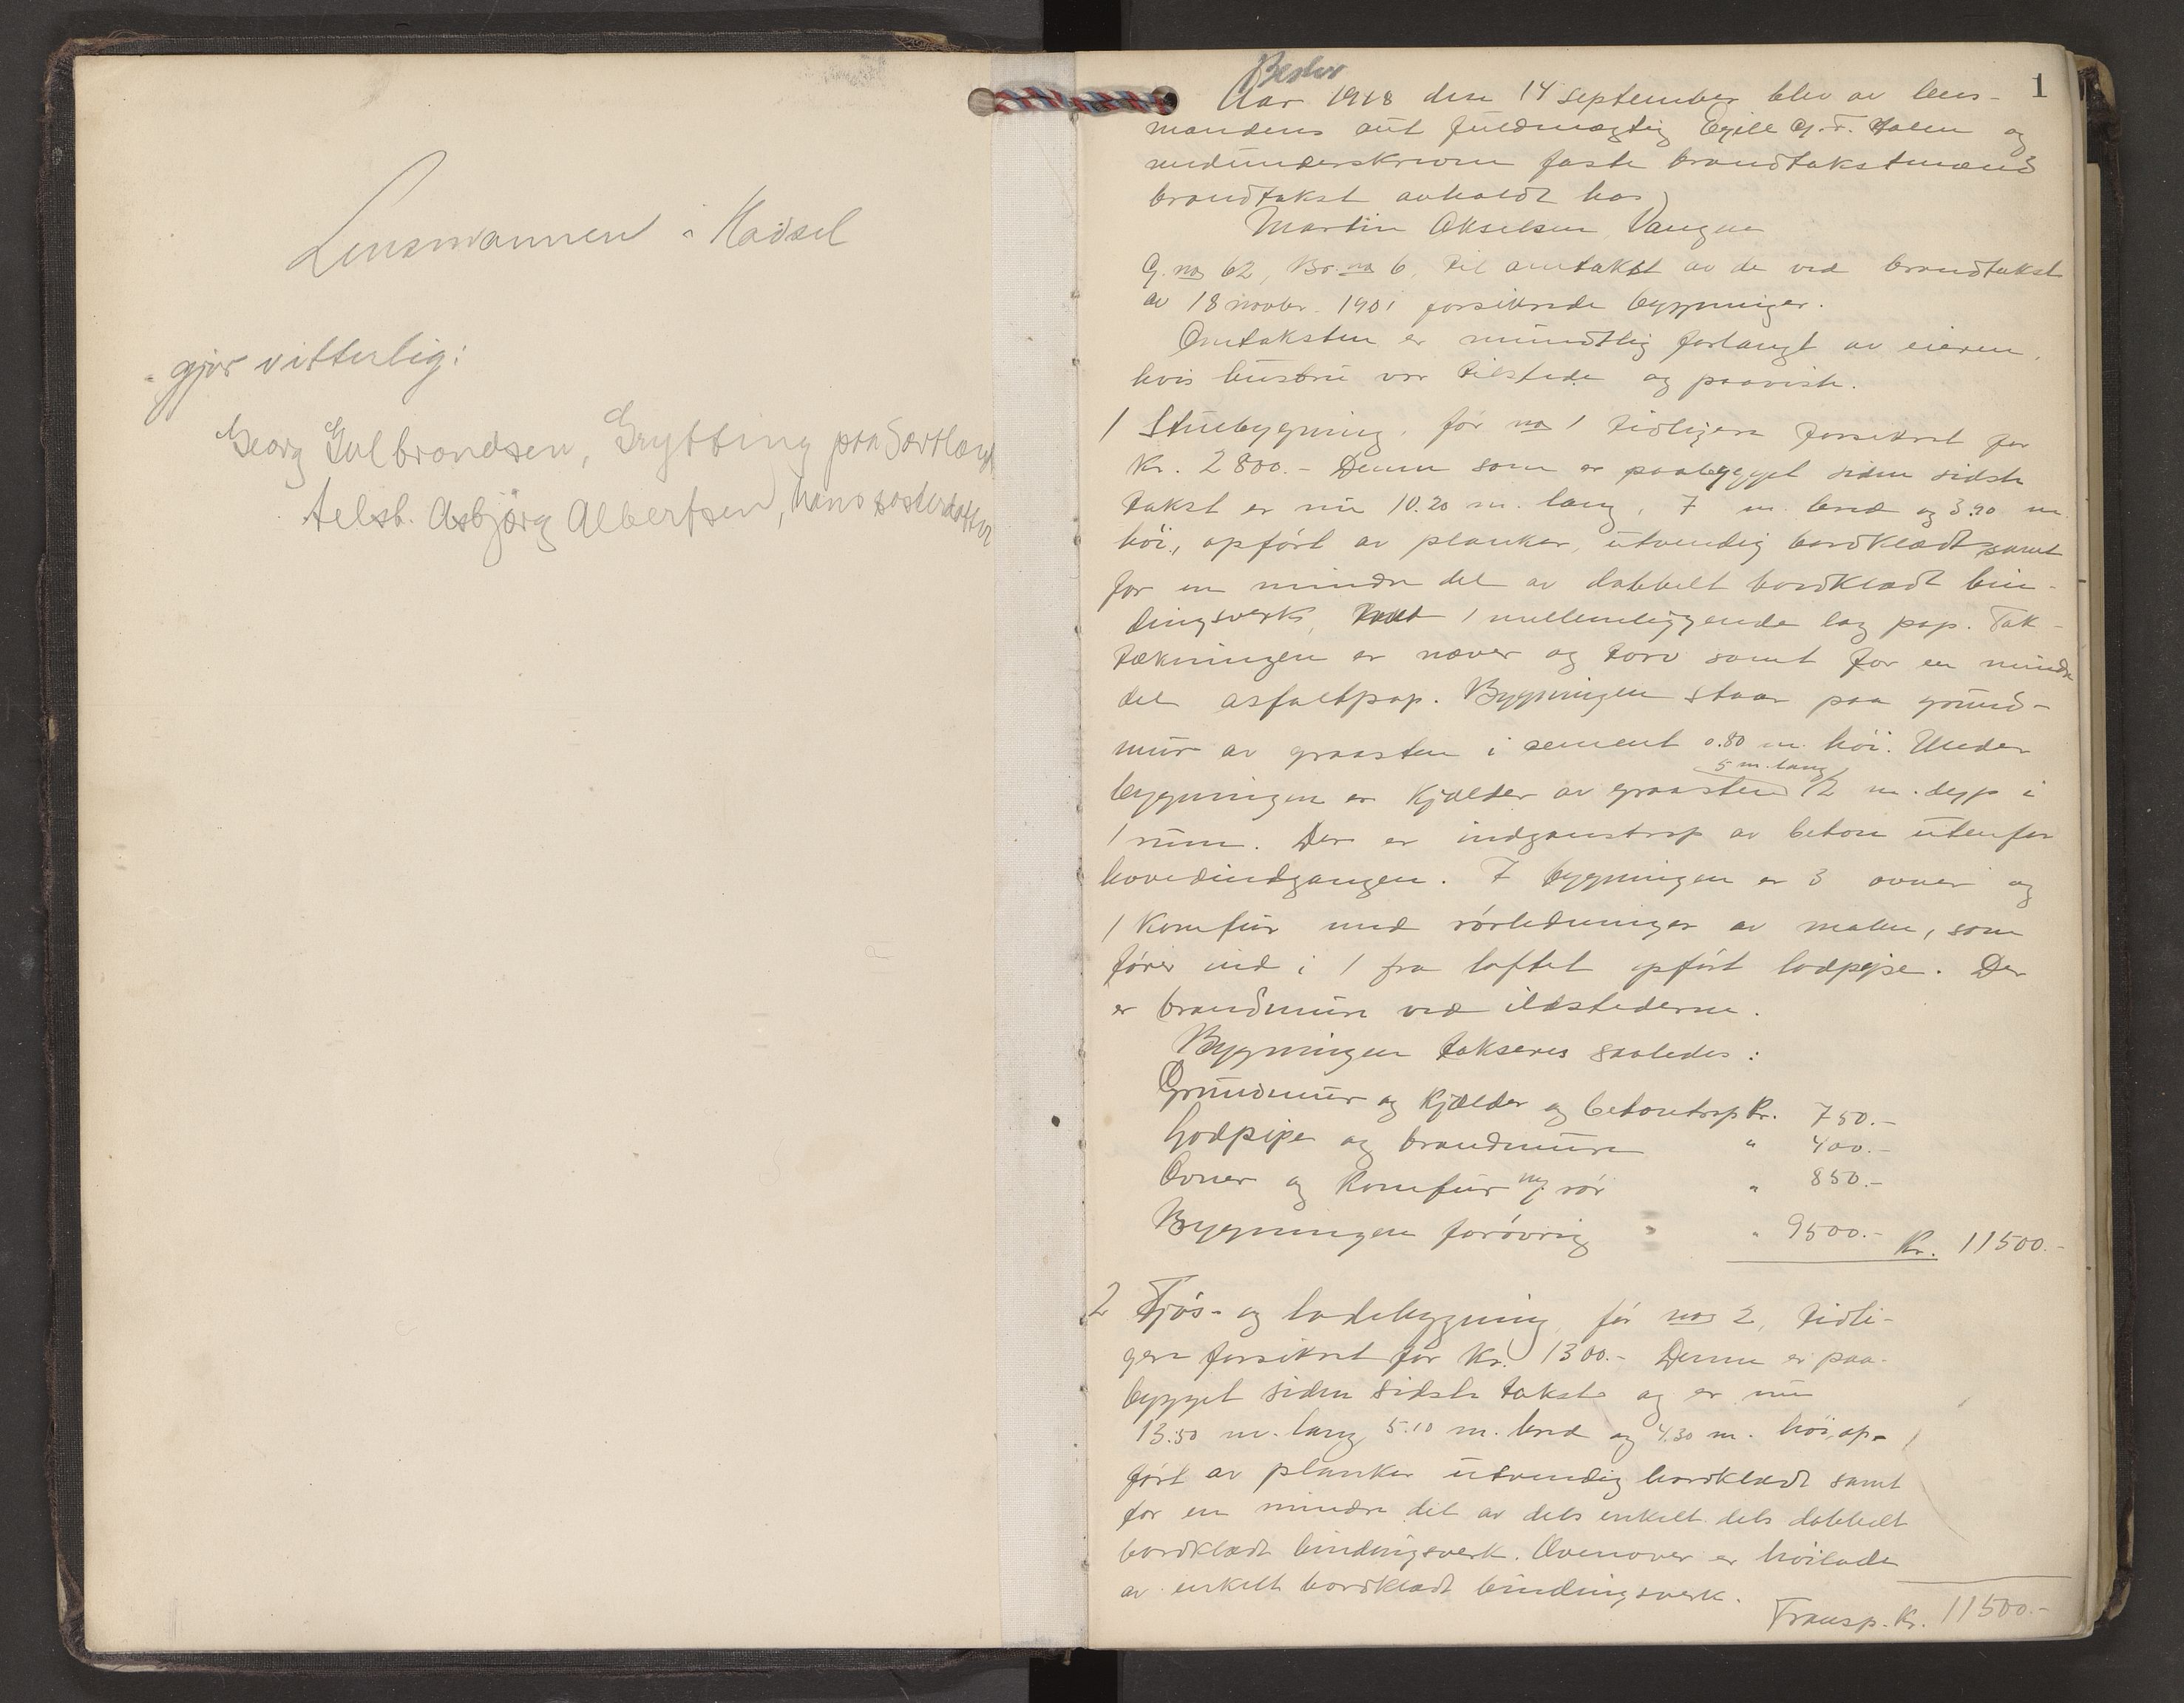 Lensmannen i Hadsel
gjør vitterlig:
Georg Gulbrandsen, Grytting paa Sortland
telsb. Asbjørg Albertsen, hans søsterdatter
1
Aar 1918 den 14 september blev av lens-
mandens aut fuldmægtig Egill G. F. og
medunderskrevne faste brandtakstmænd
brandtakst avholdt hos
Martin Akselsen, Vangen
G. no 62, Br. no 6, til omtakst av de ved brandtakst
av 18 novbr. 1901 forsikrede bygninger.
Omtaksten er mundtlig forlangt av eieren,
hvis hustru var tilstede og paaviste.
1 Stuebygning, før no 1 tidligere forsikret for
Kr. 2800.- Denne som er paabygget siden sidste
takst er nu 10.20 m. lang, 7 m. bred og 3.90 m
høi, opført av planker, utvendig bordklædt samt
for en mindre del av dobbelt bordklædt bin-
dingsverk, 1 mellemliggende lag pap. Tak-
tækningen er næver og torv samt for en mindre
del asfaltpap. Bygningen staar paa grund-
mur av graasten i sement 0.80 m. høi. Under
5 m. lang
bygningen er kjælder av graasten 2 m. dyp i
1 rum. Der er indganstrap av beton utenfor
hovedindgangen. I bygningen er 3 ovner og
1 komfur med rørledninger av malm, som
fører ind i 1 fra loftet opført lodpipe. Der
er brandmure ved ildstederne.
Bygningen takseres saaledes:
Grundmur og kjælder og betontrap Kr. 750.-
Lodpipe og brandmure " 400.-
Ovner og komfur m/ rør " 850.-
Bygningen forøvrig " 9500.- Kr. 11500.-
2 Fjøs- og ladebygning, før no 2, tidli-
gere forsikret for Kr. 1300.- Denne er paa-
bygget siden sidste takst og er nu
13.50 m. lang 5.10 m. bred og 4.30 m. høi, op-
ført av planker utvendig bordklædt samt
for en mindre del av dels enkelt dels dobbelt
bordklædt bindingsverk. Ovenover er høilade
av enkelt bordklædt bindingsverk.
Transp. Kr. 11500.-